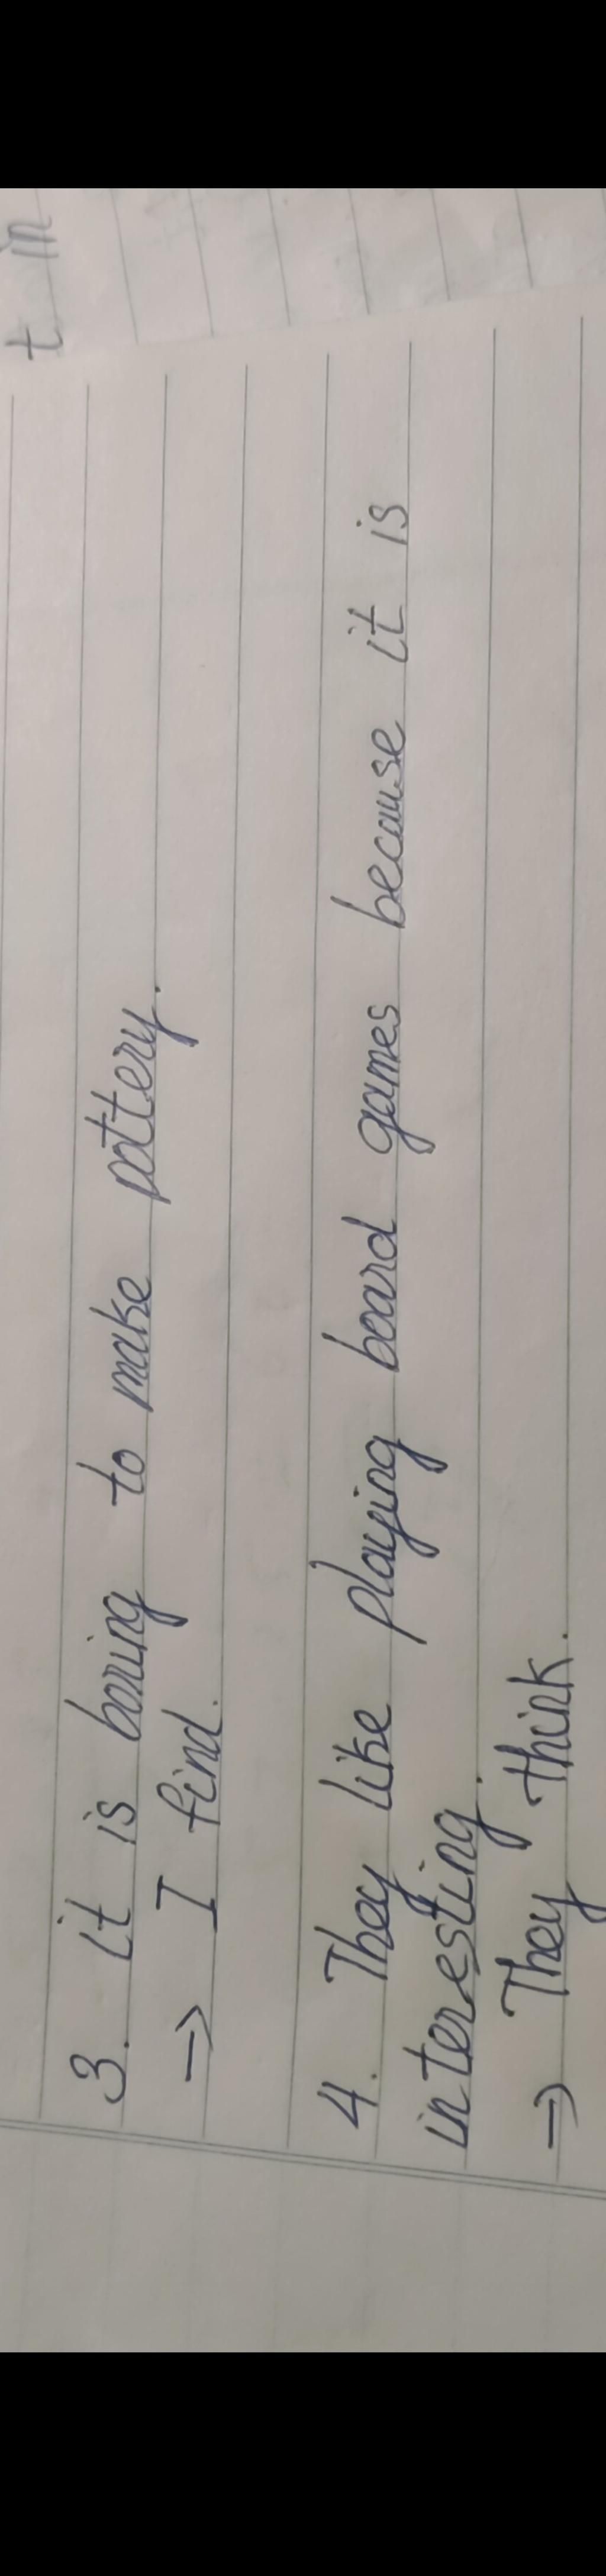 t in
3. it is boring to make pottery.
→ I find.
4. They like playing board games because it is
interesting.
→ They think.